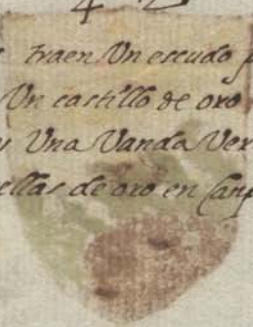 traen Un escudo p
Un castillo de oro
y Una Vanda Ver
ellas de oro en Canp